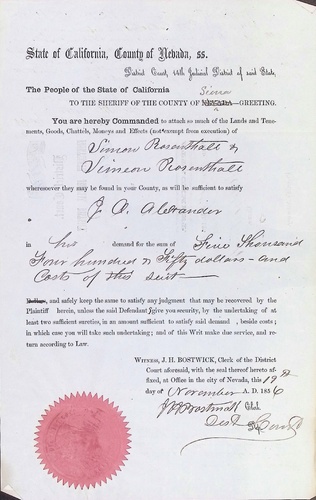 State of California, County of Nevada, ss.
District Court, 14th Judicial District of said State.
The People of the State of California
Sierra
TO THE SHERIFF OF THE COUNTY OF NEVADA—GREETING.
You are hereby Commanded to attach so much of the Lands and Tenements, Goods, Chattels, Moneys and Effects (not exempt from execution) of
Simon Rosenthall &
Simeon Rosenthall
wheresoever they may be found in your County, as will be sufficient to satisfy
J. A. Alexander
in his demand for the sum of Five Thousand
Four hundred & Fifty dollars - and
Costs of this suit
and safely keep the same to satisfy any judgment that may be recovered by the
Plaintiff herein, unless the said Defendant give you security, by the undertaking of at
least two sufficient sureties, in an amount sufficient to satisfy said demand, besides costs;
in which case you will take such undertaking; and of this Writ make due service, and return according to Law.
WITNESS, J. H. BOSTWICK, Clerk of the District
Court aforesaid, with the seal thereof hereto affixed, at Office in the city of Nevada, this 19
day of November A. D. 1856
J H Bostwick Clerk.
Dist Court